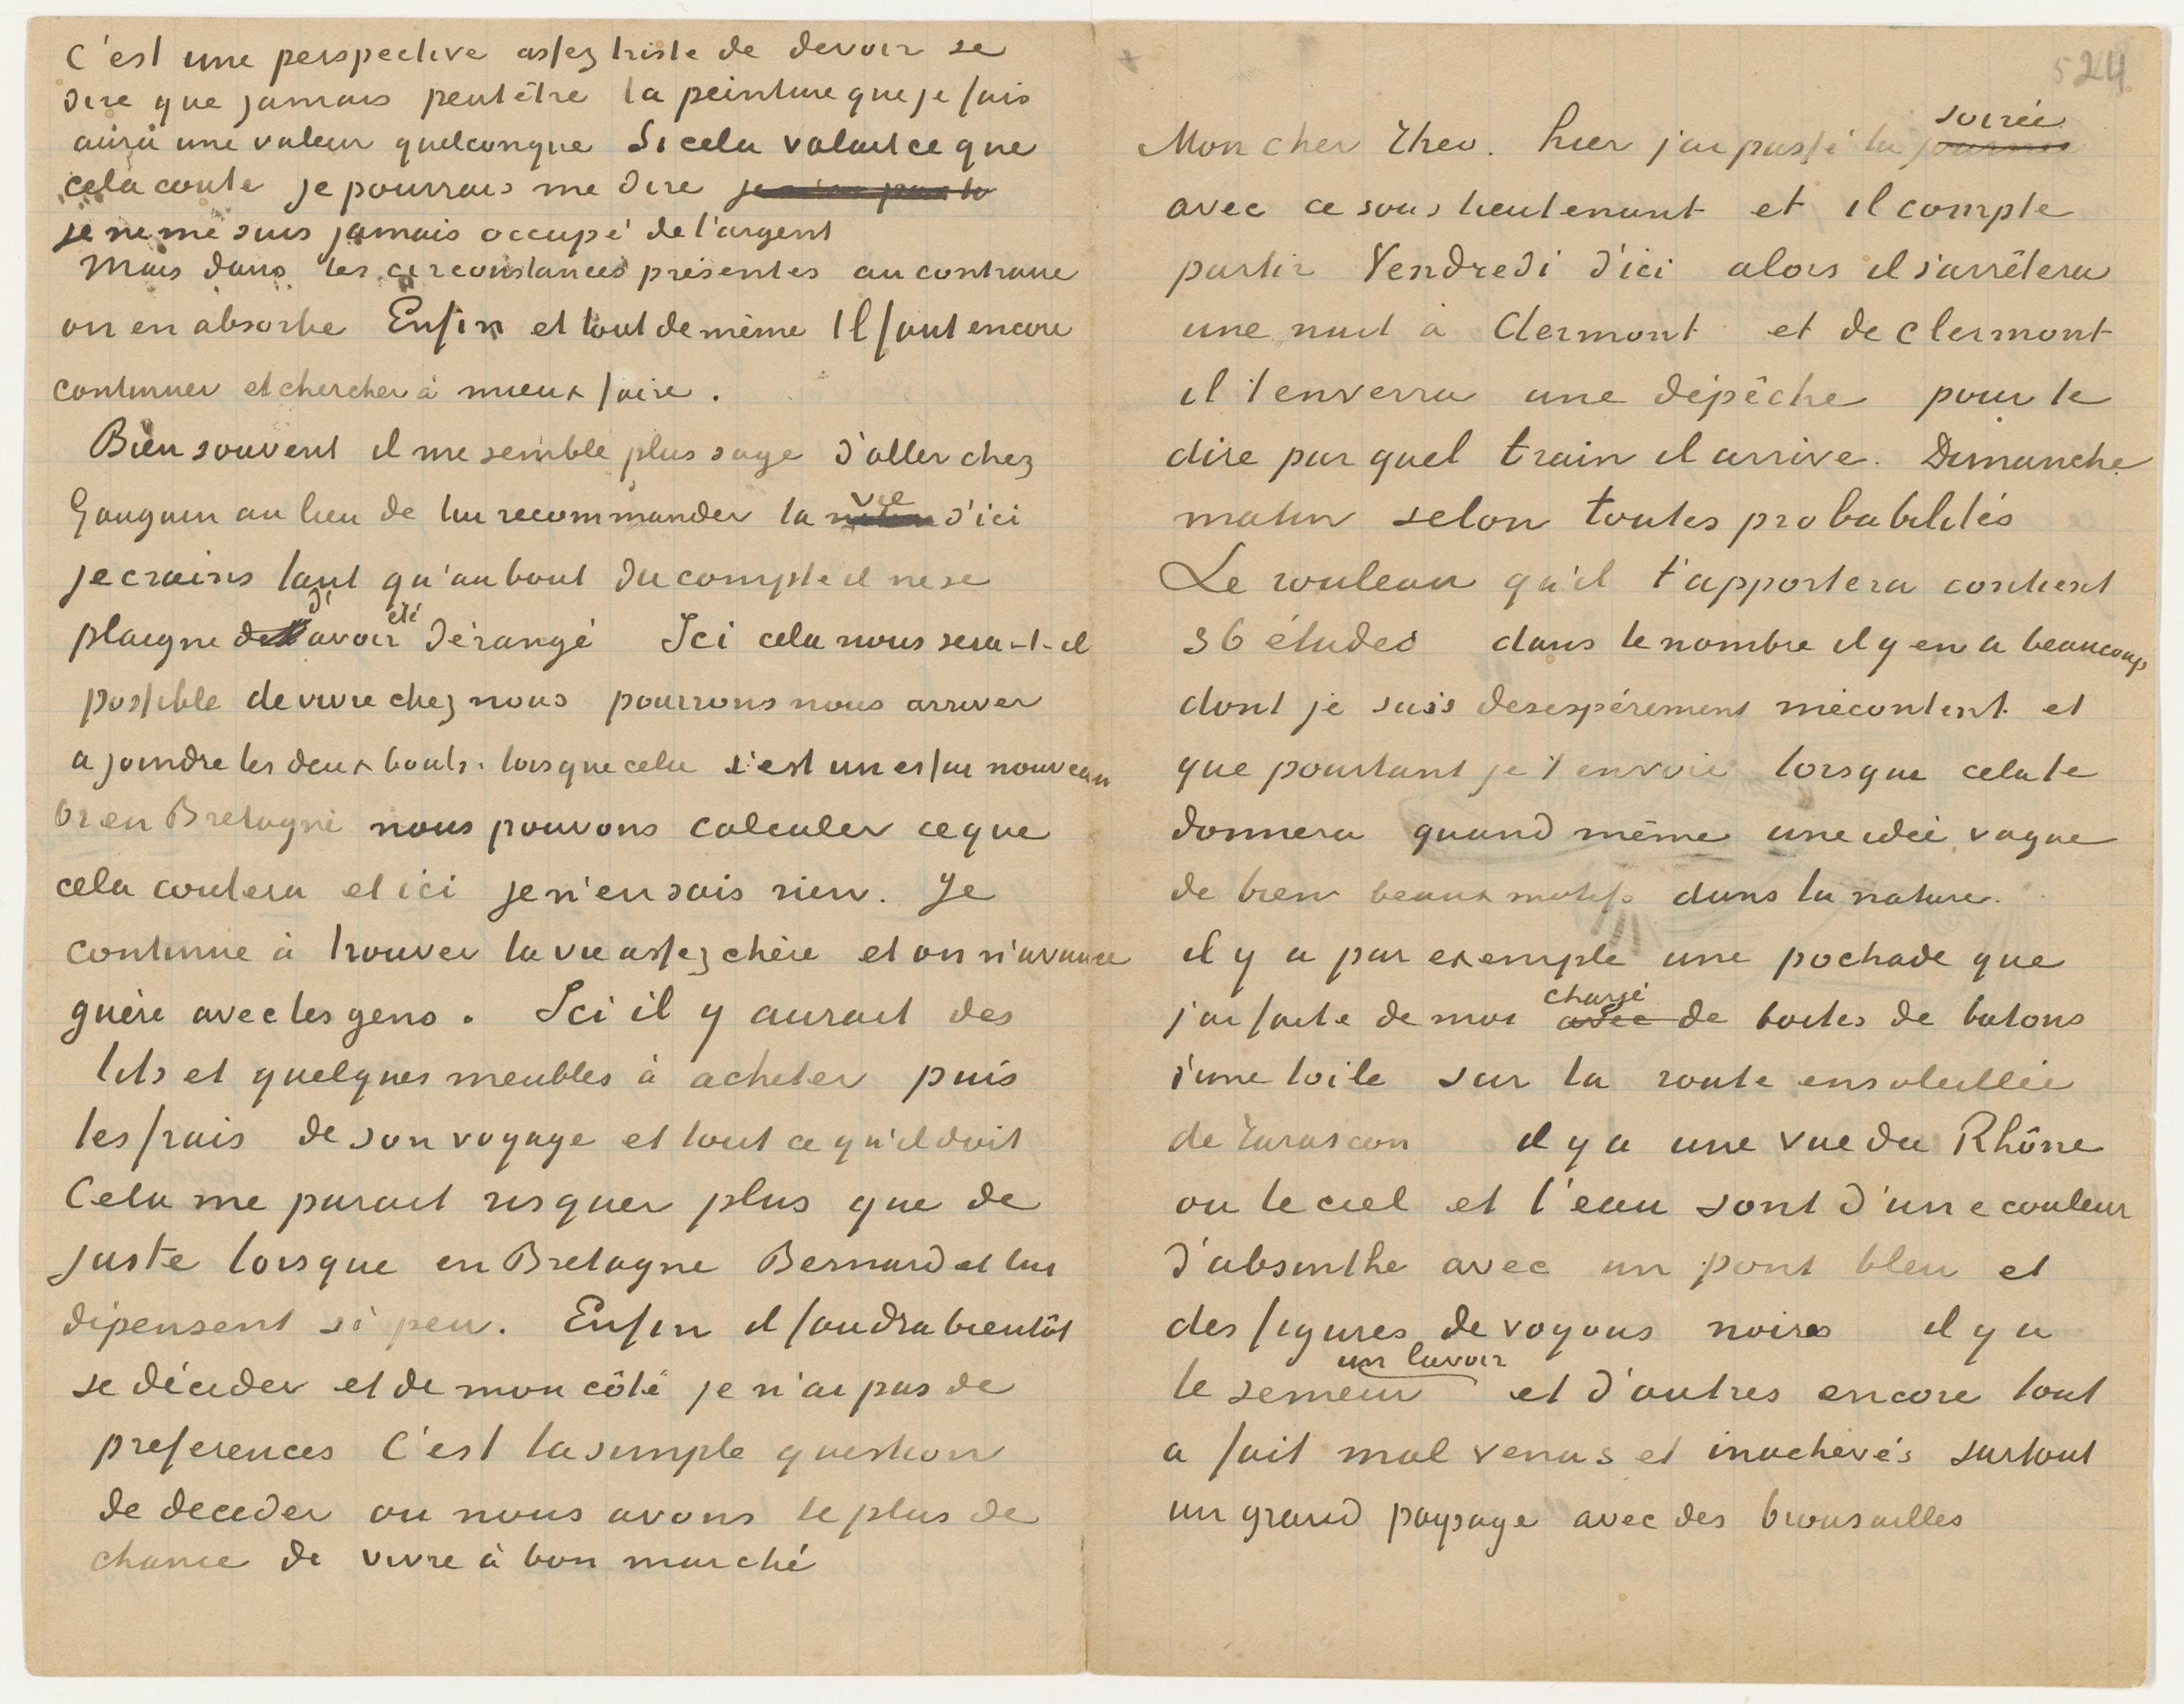 C'est une perspective assez triste de devoir se
dire que jamais peutêtre la peinture que je fais
aura une valeur quelconque Si cela valait ce que
cela coute je pourrais me dire
je ne me suis jamais occupé de l'argent
Mais dans les circonstances présentes au contraire
on en absorbe Enfin et tout de même Il faut encore
continuer et chercher à mieux faire.
Bien souvent il me semble plus sage d'aller chez
Gauguin au lieu de lui recommander la vie d'ici
je crains tant qu'au bout du compte il ne se
plaigne d'avoir été dérangé Ici cela nous sera-t-il
possible de vivre chez nous pourrons nous arriver
a joindre les deux bouts. lorsque cela c'est un essai nouveau
Or en Bretagne nous pouvons calculer ce que
cela coutera et ici je n'en sais rien. Je
continue à trouver la vie assez chère et on n'avance
guère avec les gens. Ici il y aurait des
lits et quelques meubles à acheter puis
les frais de son voyage et tout ce qu'il doit
Cela me parait risquer plus que de
juste lorsque en Bretagne Bernard et lui
dépensent si peu. Enfin il faudra bientôt
se décider et de mon côté je n'ai pas de
preferences C'est la simple question
de decider ou nous avons le plus de
chance de vivre à bon marché
524
Mon cher Theo. hier j'ai passé la journée soirée
avec ce sous lieutenant et il compte
partir Vendredi d'ici alors il s'arrêtera
une nuit à Clermont et de Clermont
il t'enverra une dépêche pour te
dire par quel train il arrive. Dimanche
matin selon toutes probabilités
Le rouleau qu'il t'apportera contient
36 études dans le nombre il y en a beaucoup
dont je suis desespérément mécontent et
que pourtant je t'envoie lorsque cela te
donnera quand même une idée vague
de bien beaux motifs dans la nature.
il y a par exemple une pochade que
j'ai faite de moi avec chargé de boites de batons
d'une toile sur la route ensoleillée
de Tarascon il y a une vue du Rhône
ou le ciel et l'eau sont d'une couleur
d'absinthe avec un pont bleu et
des figures de voyous noires il y a
le semeur un lavoir et d'autres encore tout
a fait mal venus et inachevés surtout
un grand paysage avec des brousailles